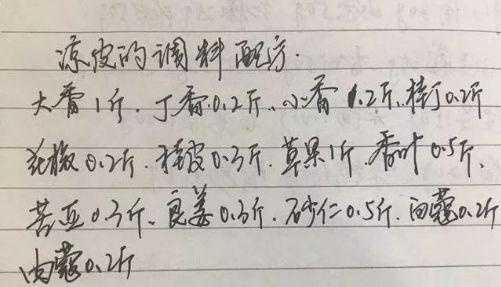 凉皮的调料配方.
大香1斤.丁香0.2斤、小香1.2斤、桂丁0.2斤
花椒0.2斤.桂皮0.3斤.草果1斤.香叶0.5斤、
0.3斤、良姜0.3斤.砂仁0.5斤.白蔻0.2斤
肉蔻0.2斤